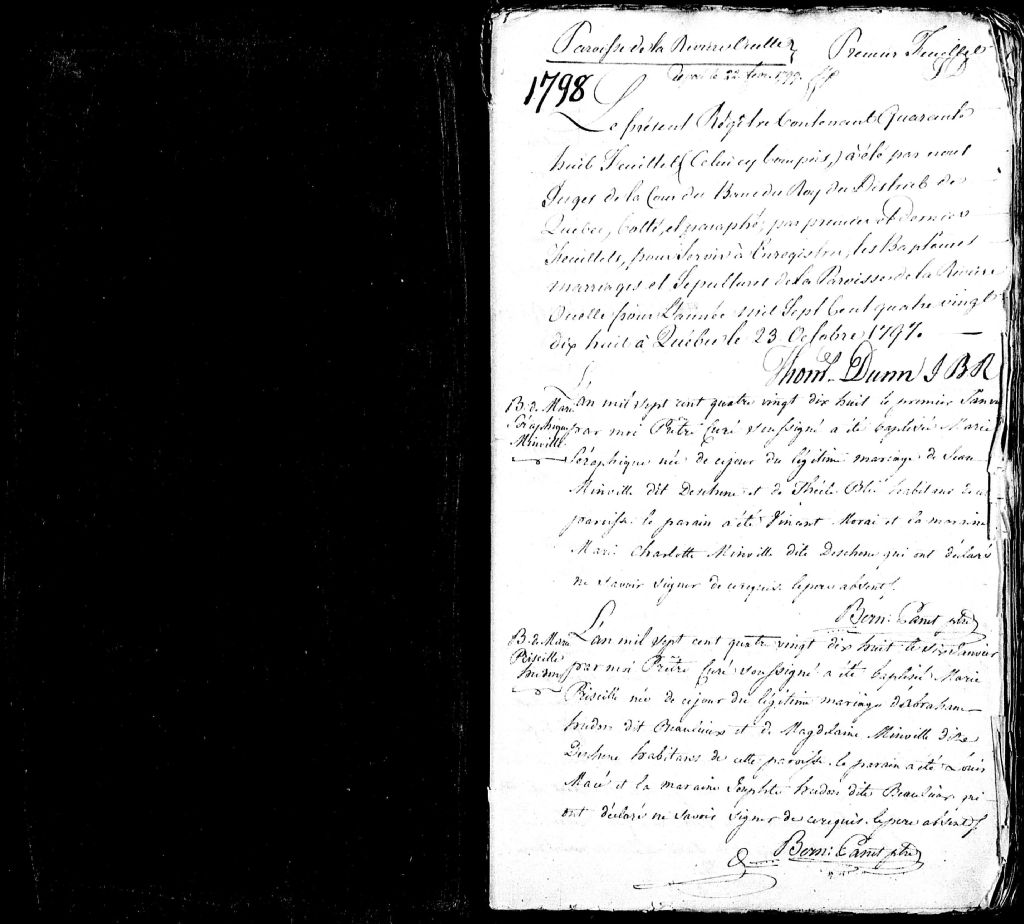 Paroisse de la Riviere Ouelle Premier Feuillet
22 1799
1798
Le présent Régître Contenant Quarante
huit Feuillets (Celui cy Compris,) a été par nous
Juges de la Cour du Banc du Roy du District de
Quebec, Cotté, et paraphé, par premier et Dernier
Feuillets, pour Servir à Enregistrer, les Baptêmes
marriages et Sepultures de la Paroisse de la Riviere
Ouelle pour L'année mil Sept Cent quatre vingt
dix huit à Québec le 23 Octobre 1797.
Thom.s Dunn J B R
B. de Marie
Séraphique
Minville
L'an mil sept cent quatre vingt dix huit le premier Janvier
par moi Prêtre Curé soussigné a été baptisée Marie
Séraphique née de ce jour du légitime mariage de Jean
Minville dit Deschene et de habitans de
paroisse le parain a été Vincent Morai et la maraine
Marie Charlotte Minville dite Deschene qui ont déclaré
ne savoir signer de ce requis. le pere absent.
Bern: Panet ptre
B. de Marie
Priscille
hudon
L'an mil sept cent quatre vingt dix huit le six Janvier
par moi Prêtre Curé soussigné a été baptisée Marie
Priscille née de ce jour du légitime mariage d'Abraham
hudon dit Beaulieu et de Magdelaine Minville dite
Deschene habitans de cette paroisse. le parain a été Louis
Macé et la maraine hudon dite Beaulieu qui
ont déclaré ne savoir signer de ce requis. le pere absent
Bern: Panet ptre